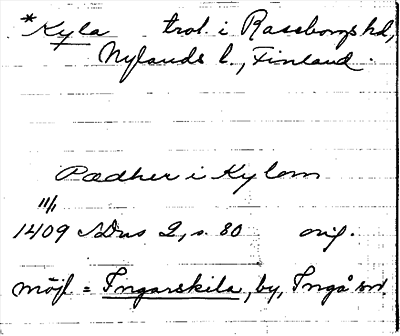 *Kyla trol. i Raseborgs hd,
Nylands l., Finland.
Pædher i Kylom
11/1
1409 SDns 2, s. 80 orig.
möjl = Ingarskila, by, Ingå sn.